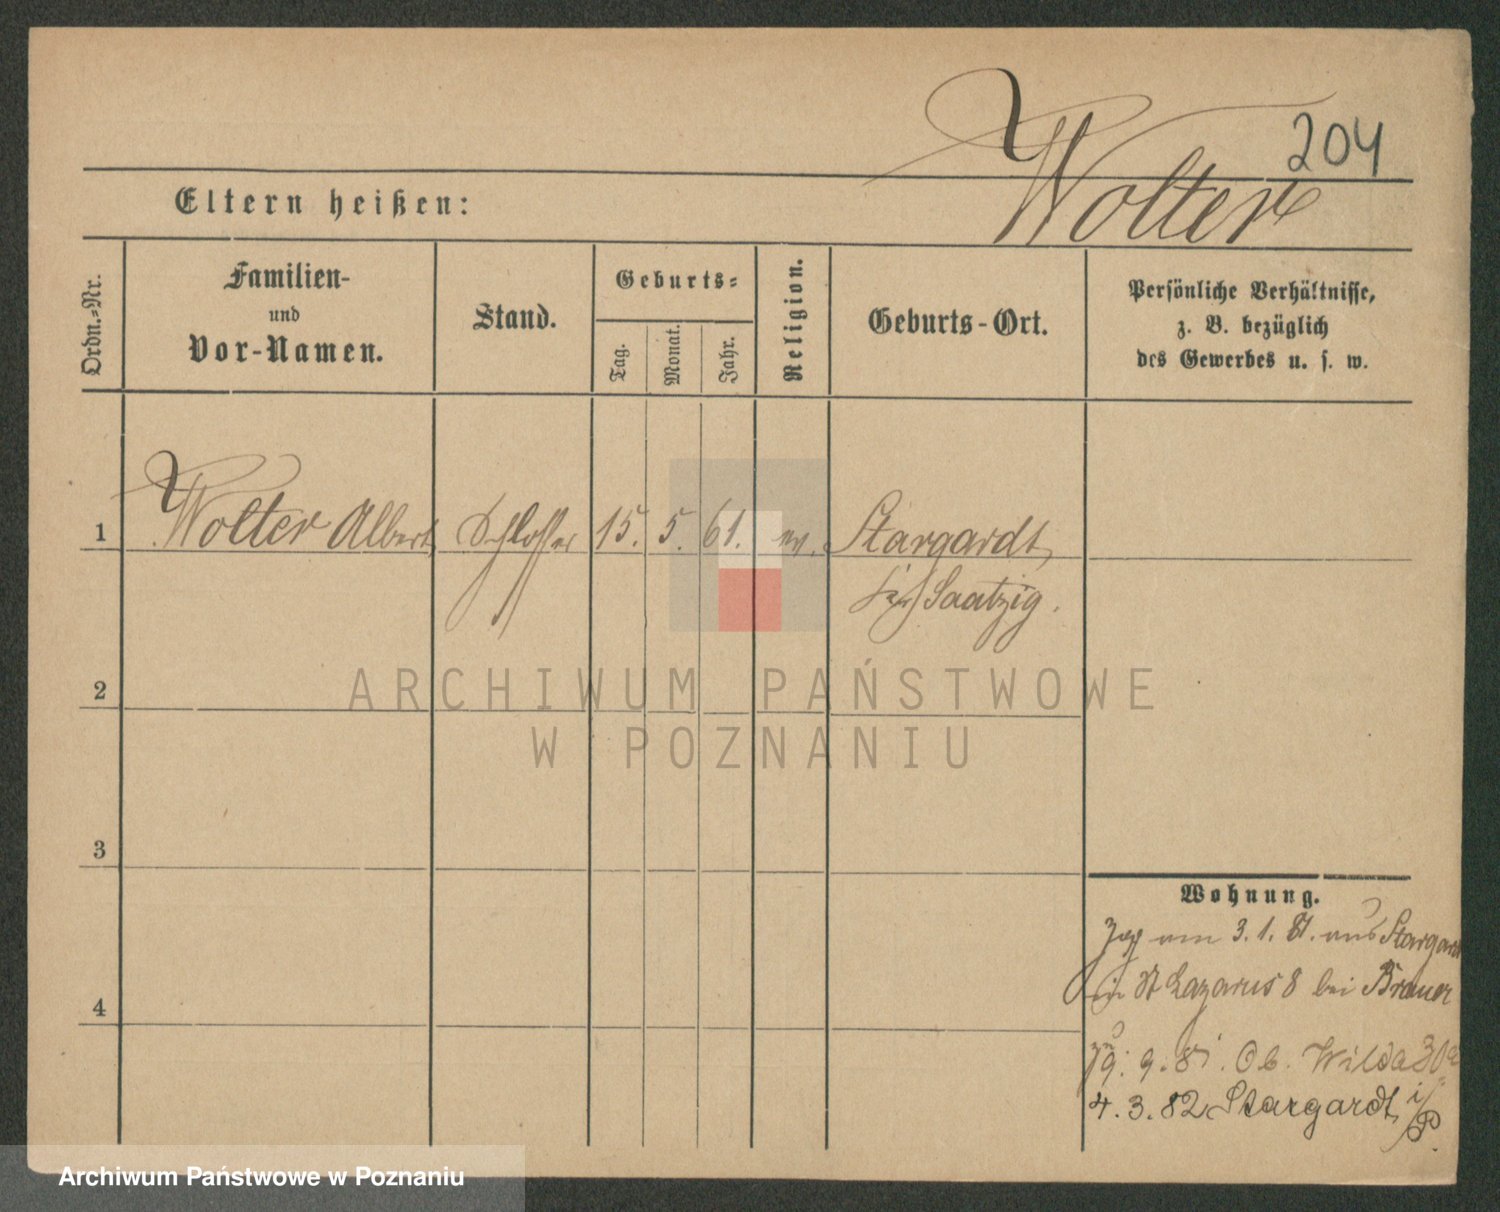 204
Wolter
Eltern heißen:
Ordn.-Nr.
Familien-
und
Vor-Namen.
Stand.
Geburts-
Tag.
Monat.
Jahr.
Religion.
Geburts-Ort.
Persönliche Verhältnisse,
z. B. bezüglich
des Gewerbes u. s. w.
1 Wolter Albert Schlosser 15. 5. 61. ev. Stargardt
Saatzig.
2
ARCHIWUM PAŃSTWOWE
W POZNANIU
3
Wohnung.
am 3. 1. 81. aus Stargard
St Lazarus 8 bei Brauer
4
9. 81. Ob. Wilda 30a
4. 3. 82 Stargardt i/P.
Archiwum Państwowe w Poznaniu